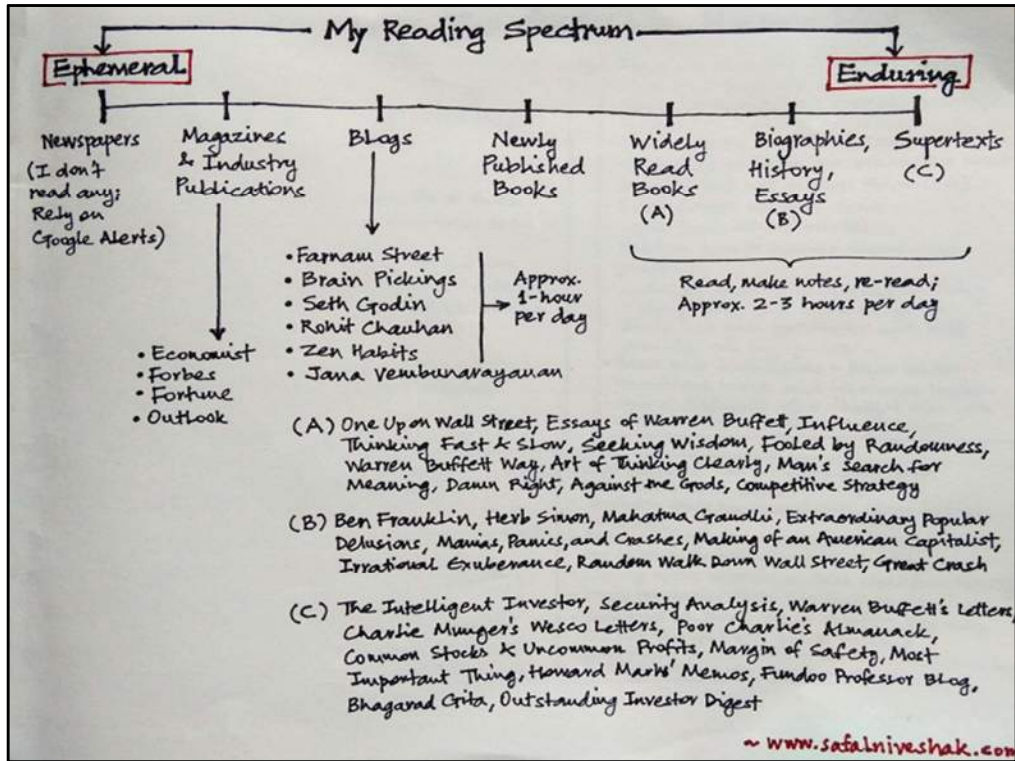 My Reading Spectrum
Ephemeral
Enduring
Newspapers
(I don't
read any;
Rely on
Google Alerts)
Magazines
& Industry
Publications
• Economist
• Forbes
• Fortune
• Outlook
Blogs
• Farnam Street
• Brain Pickings
• Seth Godin
• Rohit Chauhan
• Zen Habits
• Jana Vembunarayanan
Approx.
1-hour
per day
Newly
Published
Books
Widely
Read
Books
(A)
Biographies,
History,
Essays
(B)
Supertexts
(C)
Read, make notes, re-read;
Approx. 2-3 hours per day
(A) One Upon Wall Street, Essays of Warren Buffett, Influence,
Thinking Fast & Slow, Seeking Wisdom, Fooled by Randomness,
Warren Buffett Way, Art of Thinking Clearly, Man's Search for
Meaning, Damn Right, Against the Gods, Competitive Strategy
(B) Ben Franklin, Herb Simon, Mahatma Gandhi, Extraordinary Popular
Delusions, Manias, Panics, and Crashes, Making of an American Capitalist,
Irrational Exuberance, Random Walk Down Wall Street, Great Crash
(C) The Intelligent Investor, Security Analysis, Warren Buffett's Letters,
Charlie Munger's Wesco Letters, Poor Charlie's Almanack,
Common Stocks & Uncommon Profits, Margin of Safety, Most
Important Thing, Howard Marks' Memos, Fundoo Professor Blog,
Bhagavad Gita, Outstanding Investor Digest
~ www.safalniveshak.com